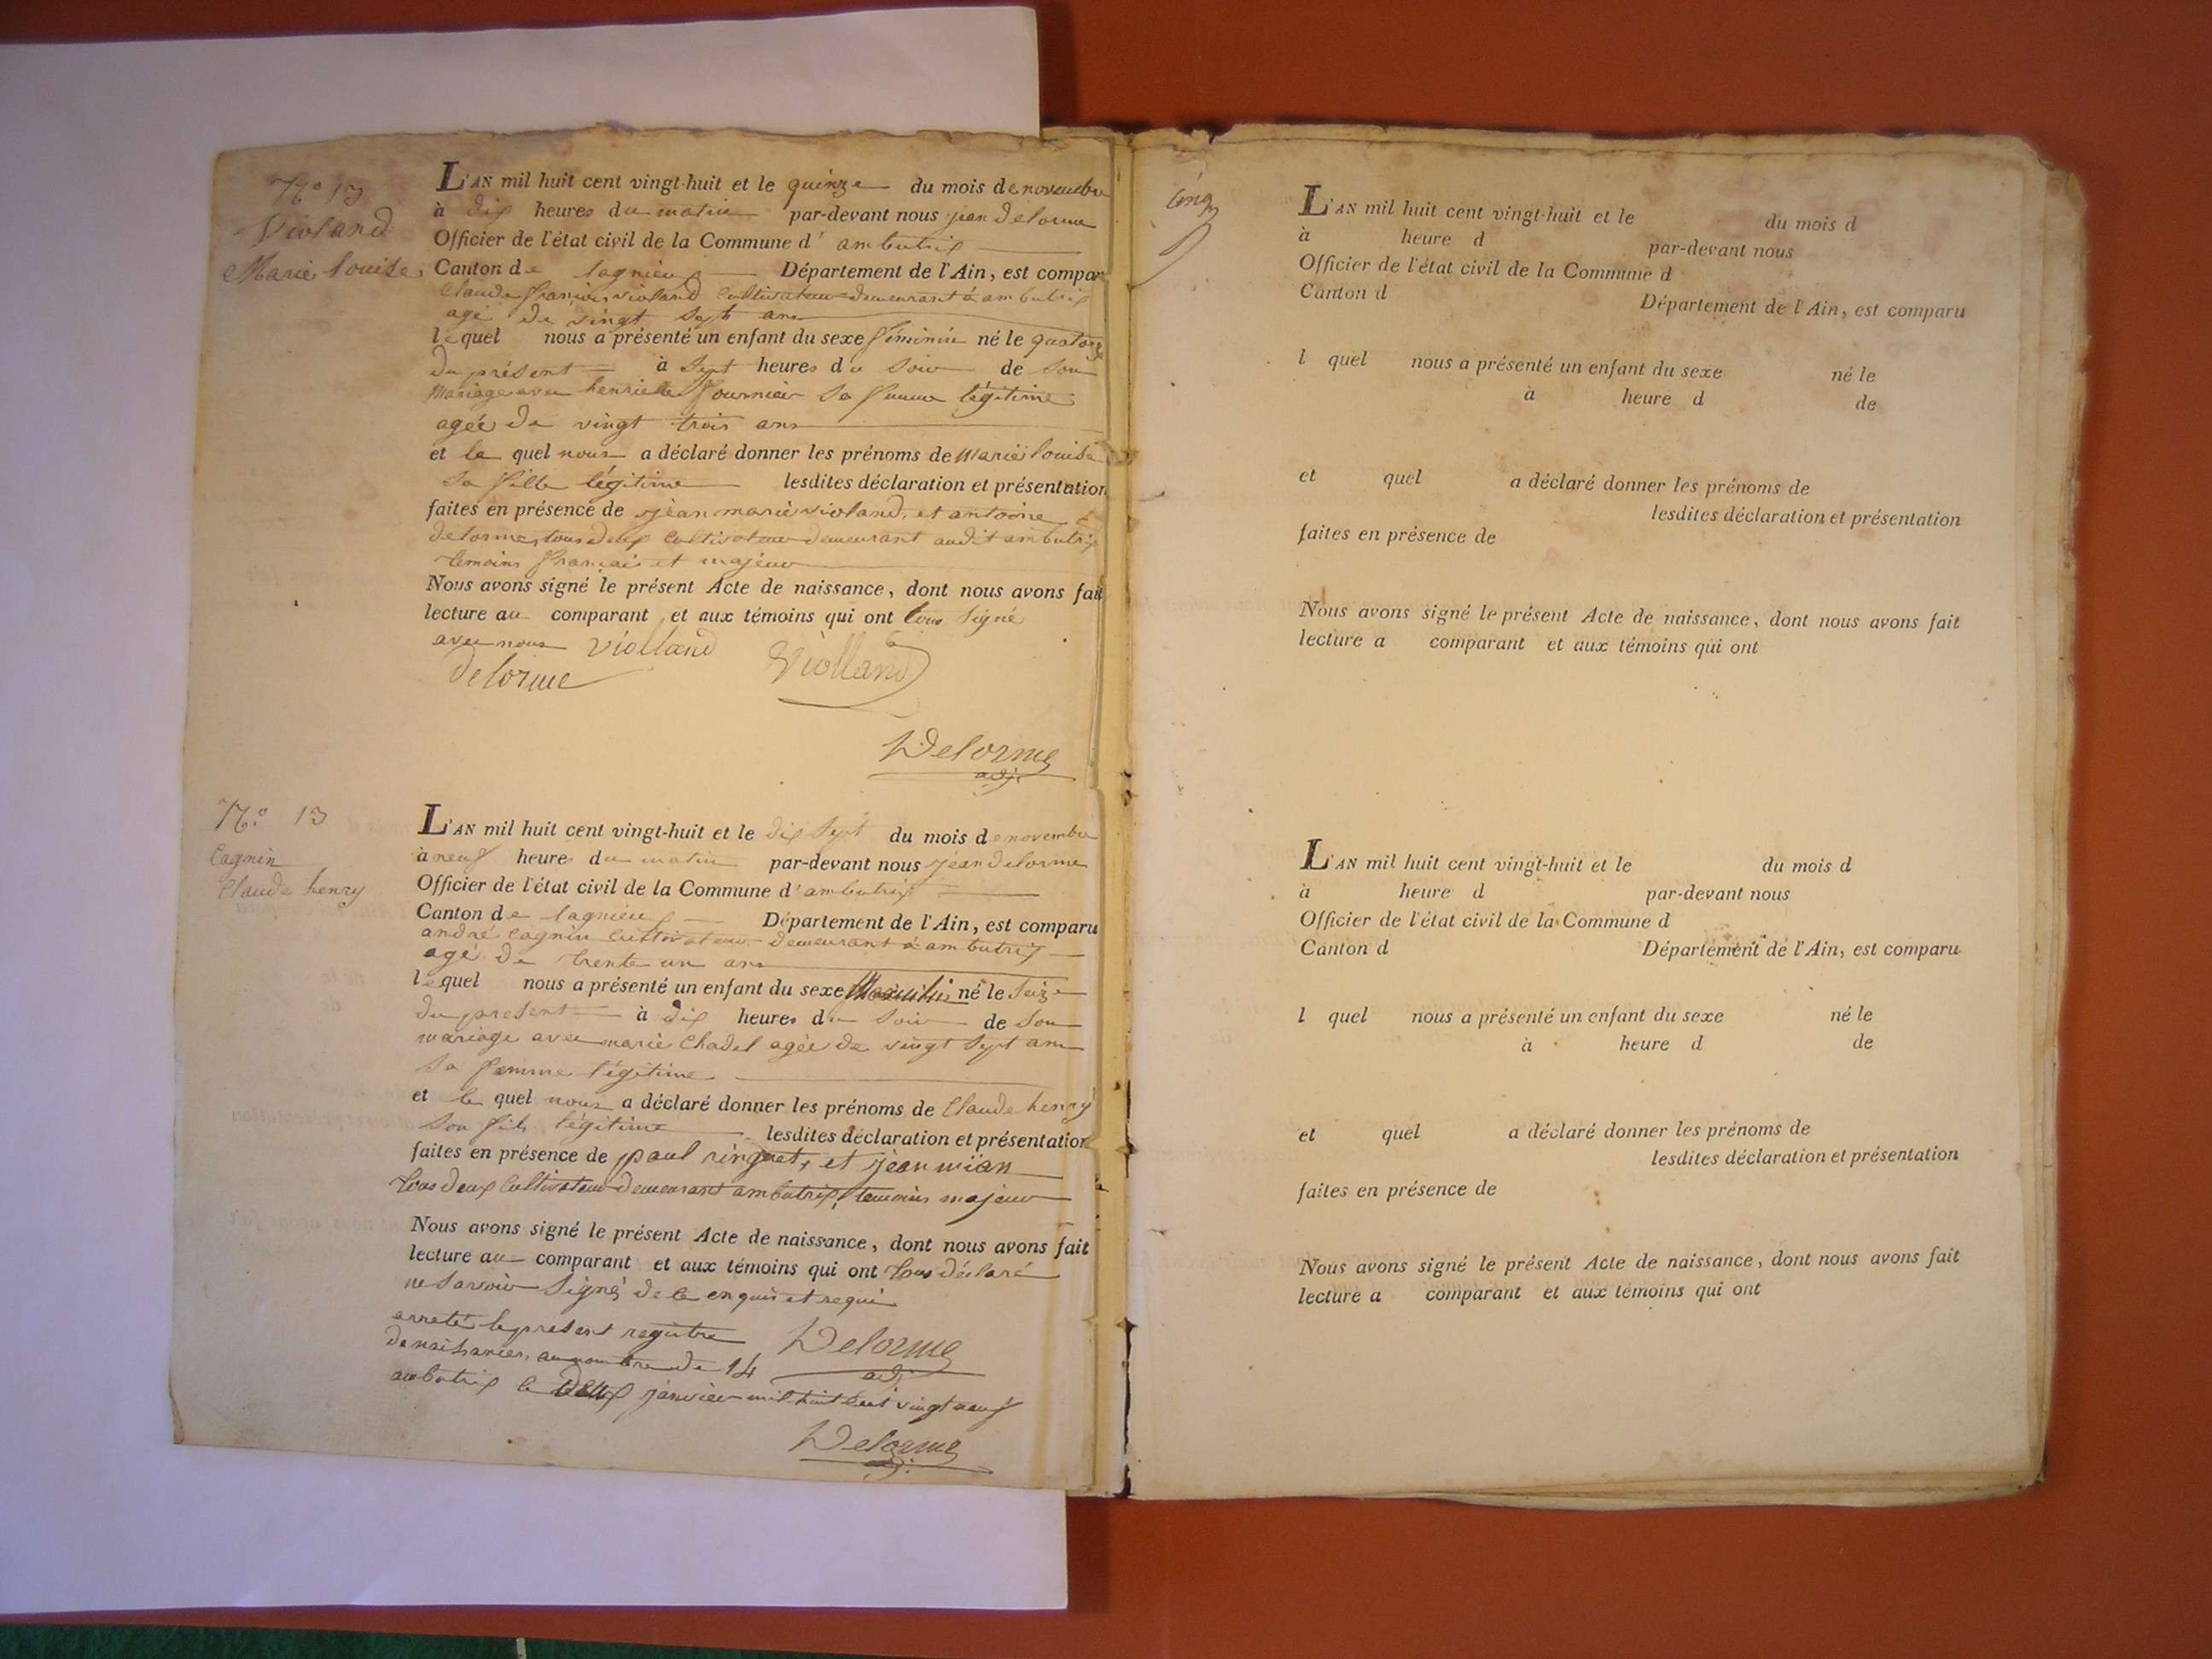 N.o 13
Violand
Marie louise
L'AN mil huit cent vingt-huit et le quinze du mois de novembre
à dix heures du matin par-devant nous jean delorme
Officier de l'état civil de la Commune d' ambutrix
Canton de lagnieu Département de l'Ain, est compar
Claude françois violand cultivateur demeurant à ambutrix
agé de vingt sept ans
lequel nous a présenté un enfant du sexe féminin né le quatorze
du présent à sept heures du soir de son
mariage avec henriette fournier sa femme légitime
agée de vingt trois ans
et le quel nous a déclaré donner les prénoms de marie louise
sa fille légitime lesdites déclaration et présentation
faites en présence de jean marie violand, et antoine
delorme tous deux cultivateur demeurant audit ambutrix
temoins français et majeur
Nous avons signé le présent Acte de naissance, dont nous avons fait
lecture au comparant et aux témoins qui ont tous signé
avec nous violland Violland
delorme
Delorme
adj.
N.o 13
Cagnin
Claude henry
L'AN mil huit cent vingt-huit et le dix sept du mois de novembre
à neuf heures du matin par-devant nous jean delorme
Officier de l'état civil de la Commune d'ambutrix
Canton de lagnieu Département de l'Ain, est comparu
andré cagnin cultivateur demeurant à ambutrix
agé de trente un ans
lequel nous a présenté un enfant du sexe Masculin né le seize
du present à dix heures du soir de son
mariage avec marie Chadel agée de vingt sept ans
sa femme légitime
et le quel nous a déclaré donner les prénoms de Claude henry
son fils légitime lesdites déclaration et présentation
faites en présence de paul ringuet, et jean mian
tous deux cultivateur demeurant ambutrix, temoins majeur
Nous avons signé le présent Acte de naissance, dont nous avons fait
lecture au comparant et aux témoins qui ont tous déclaré
ne savoir signé de ce enquis et requi
arreté le present registre Delorme
de naissances, au nombre de 14 adj.
ambutrix le deux janvier mil huit cent vingt neuf
Delorme
adj.
cinq
L'AN mil huit cent vingt-huit et le du mois d
à heure d par-devant nous
Officier de l'état civil de la Commune d
Canton d Département de l'Ain, est comparu
l quel nous a présenté un enfant du sexe né le
à heure d de
et quel a déclaré donner les prénoms de
lesdites déclaration et présentation
faites en présence de
Nous avons signé le présent Acte de naissance, dont nous avons fait
lecture a comparant et aux témoins qui ont
L'AN mil huit cent vingt-huit et le du mois d
à heure d par-devant nous
Officier de l'état civil de la Commune d
Canton d Département de l'Ain, est comparu
l quel nous a présenté un enfant du sexe né le
à heure d de
et quel a déclaré donner les prénoms de
lesdites déclaration et présentation
faites en présence de
Nous avons signé le présent Acte de naissance, dont nous avons fait
lecture a comparant et aux témoins qui ont